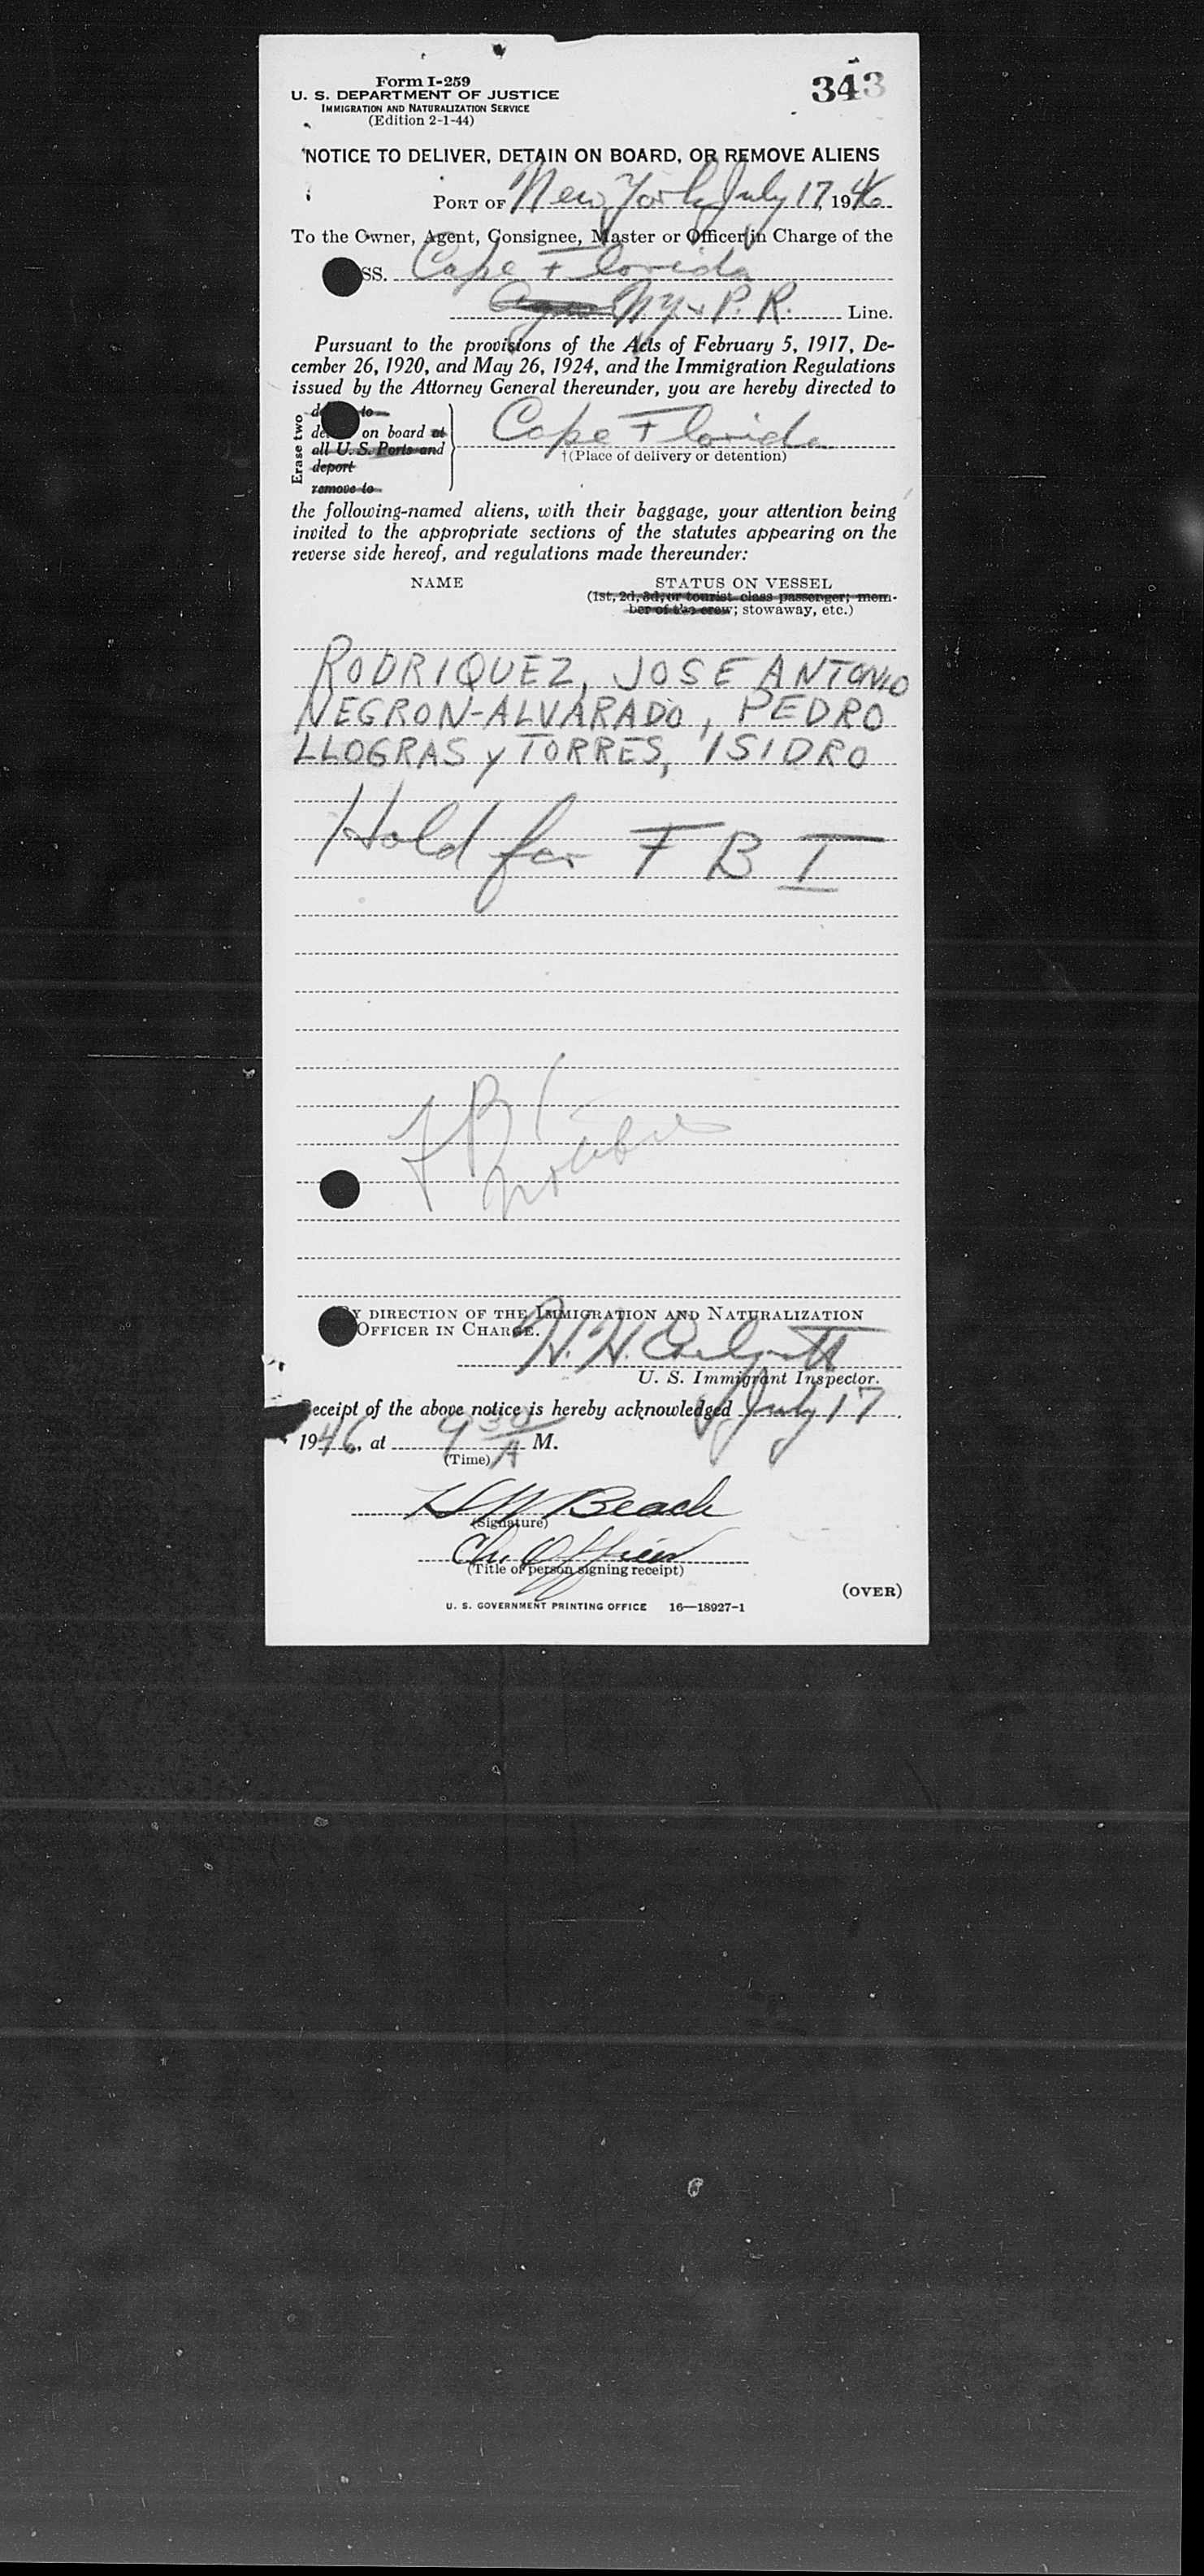 Form I-259
U. S. DEPARTMENT OF JUSTICE
IMMIGRATION AND NATURALIZATION SERVICE
(Edition 2-1-44)
343
NOTICE TO DELIVER, DETAIN ON BOARD, OR REMOVE ALIENS
PORT OF New York, July 17, 1946
To the Owner, Agent, Consignee, Master or Officer in Charge of the
SS. Cape Florida
N.Y. & P. R. Line.
Pursuant to the provisions of the Acts of February 5, 1917, De-
cember 26, 1920, and May 26, 1924, and the Immigration Regulations
issued by the Attorney General thereunder, you are hereby directed to
Erase two
to
on board at
all U. S. Ports and
deport
remove to
Cape Florida
†(Place of delivery or detention)
the following-named aliens, with their baggage, your attention being
invited to the appropriate sections of the statutes appearing on the
reverse side hereof, and regulations made thereunder:
NAME STATUS ON VESSEL
(1st, 2d, 3d, or tourist class passenger; mem-
ber of the crew; stowaway, etc.)
RODRIQUEZ, JOSE ANTONIO
NEGRON-ALVARADO, PEDRO
LLOGRAS y TORRES, ISIDRO
Hold for F B I
F B I
BY DIRECTION OF THE IMMIGRATION AND NATURALIZATION
OFFICER IN CHARGE.
H. H.
U. S. Immigrant Inspector.
Receipt of the above notice is hereby acknowledged July 17,
1946, at 9 30 A M.
(Time)
H W Beach
(Signature)
Ch. Officer
(Title of person signing receipt)
(OVER)
U. S. GOVERNMENT PRINTING OFFICE 16—18927-1